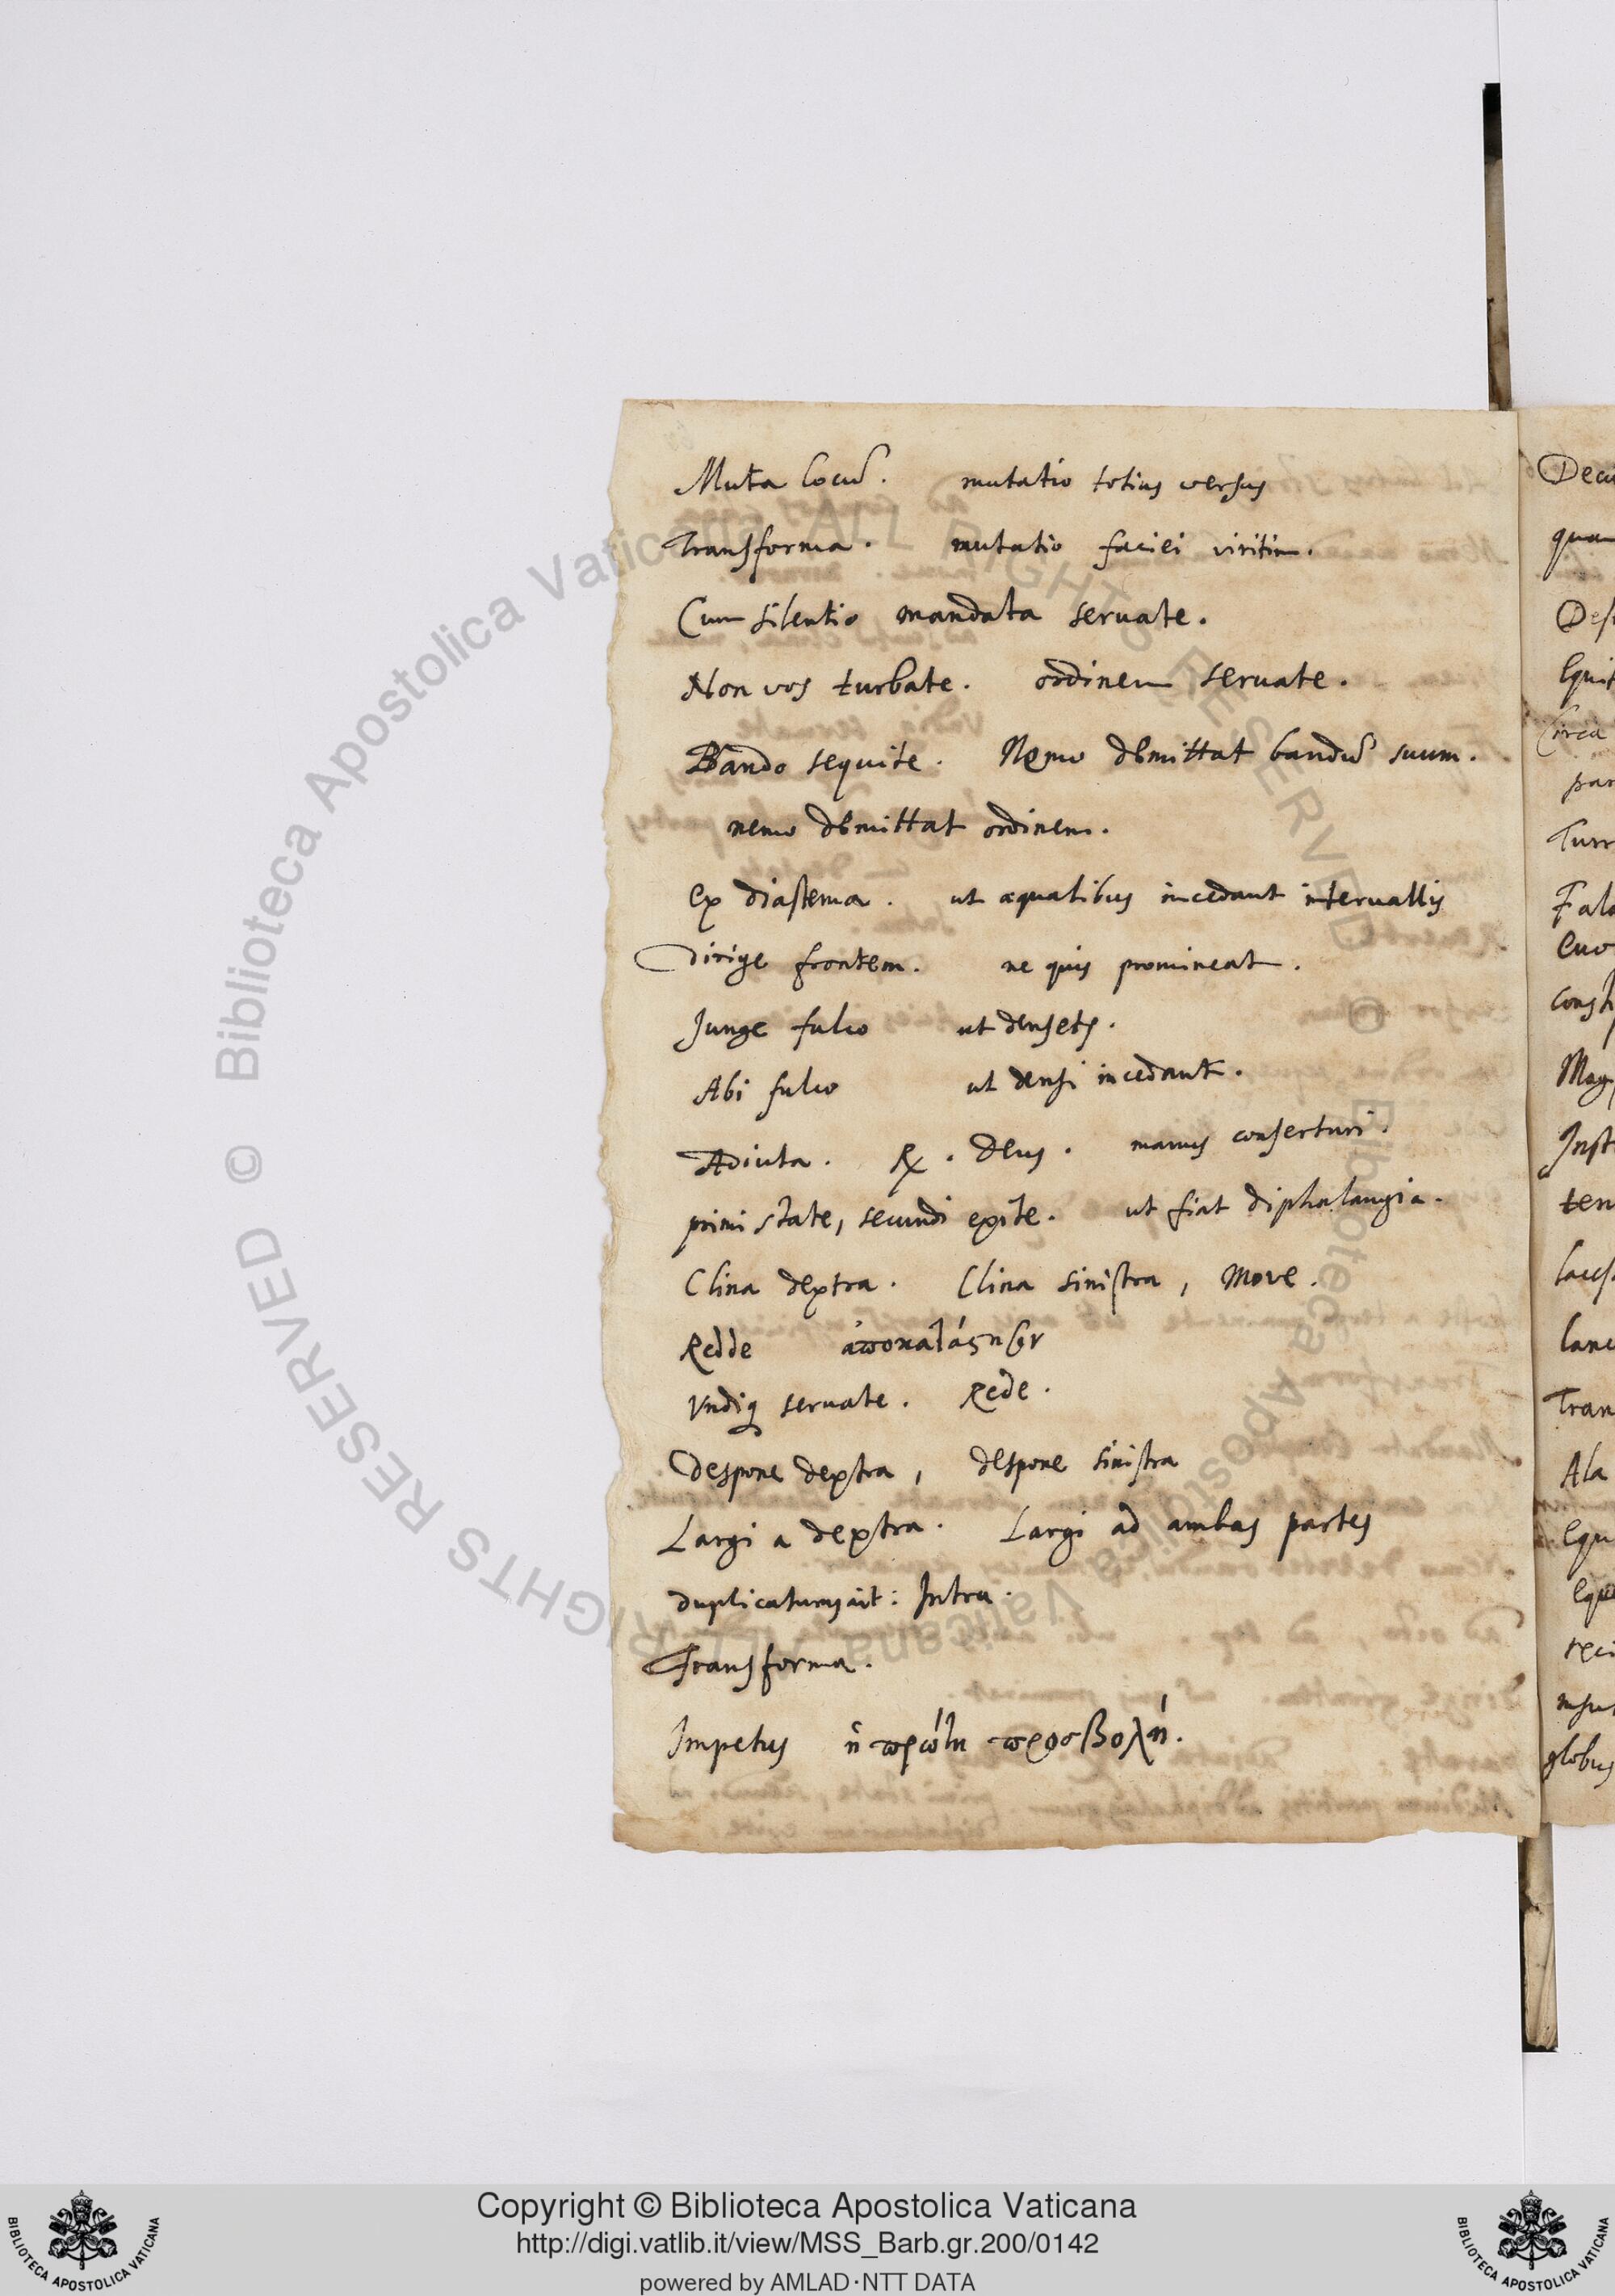 Muta locū. mutatio totius versus
Transforma. mutatio faciei viritim.
Cum silentio mandata seruate.
Non vos turbate. ordinem seruate.
Bando sequite. Nemo demittat bandū suum.
nemo demittat ordinem.
Ex diastema. ut aequalibus incedant interuallis
Dirige frontem. ne quis promineat.
Junge fulco ut denset
Abi fulco ut densi incedant.
Adiuta. ℞. Deus. manus conserturi.
primi state, secundi exite. ut fiat diphalangia.
Clina dextra. Clina sinistra, Move.
Redde ἀποκατάστησον
Undiq seruate. Rede.
Despone dextra, despone sinistra
Largi a dextra. Largi ad ambas partes
duplicaturus ait: Intra.
Transforma.
Impetus ἡ πρώτη προσβολή.
Decu
quam
Des
Equit
Circa
par
Turr
Falc
Evo
const
Mag
Inst
ten
lacess
lanc
Tran
Ala
Equ
eque
reci
insu
globus
© Biblioteca Apostolica Vaticana ALL RIGHTS RESERVED © Biblioteca Apostolica Vaticana ALL RIGHTS RESERVED
BIBLIOTECA APOSTOLICA VATICANA
Copyright © Biblioteca Apostolica Vaticana
http://digi.vatlib.it/view/MSS_Barb.gr.200/0142
powered by AMLAD·NTT DATA
BIBLIOTECA APOSTOLICA VATICANA